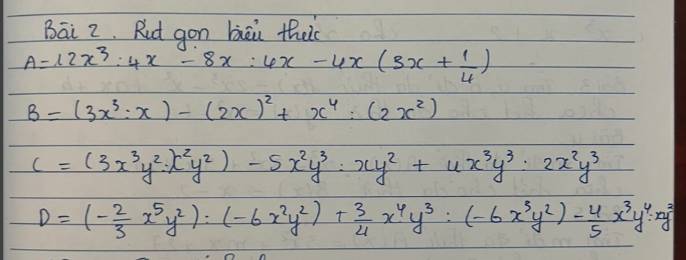 Bài 2. Rút gọn biểu thức
A = 12x³ : 4x - 8x : 4x - 4x (3x + 1/4)
B = (3x³ : x) - (2x)² + x⁴ : (2x²)
C = (3x³y² : x²y²) - 5x²y³ : xy² + 4x³y³ : 2x²y³
D = (-2/3 x⁵y²) : (-6x²y²) + 3/4 x⁴y³ : (-6x³y²) - 4/5 x³y⁴ : xy³